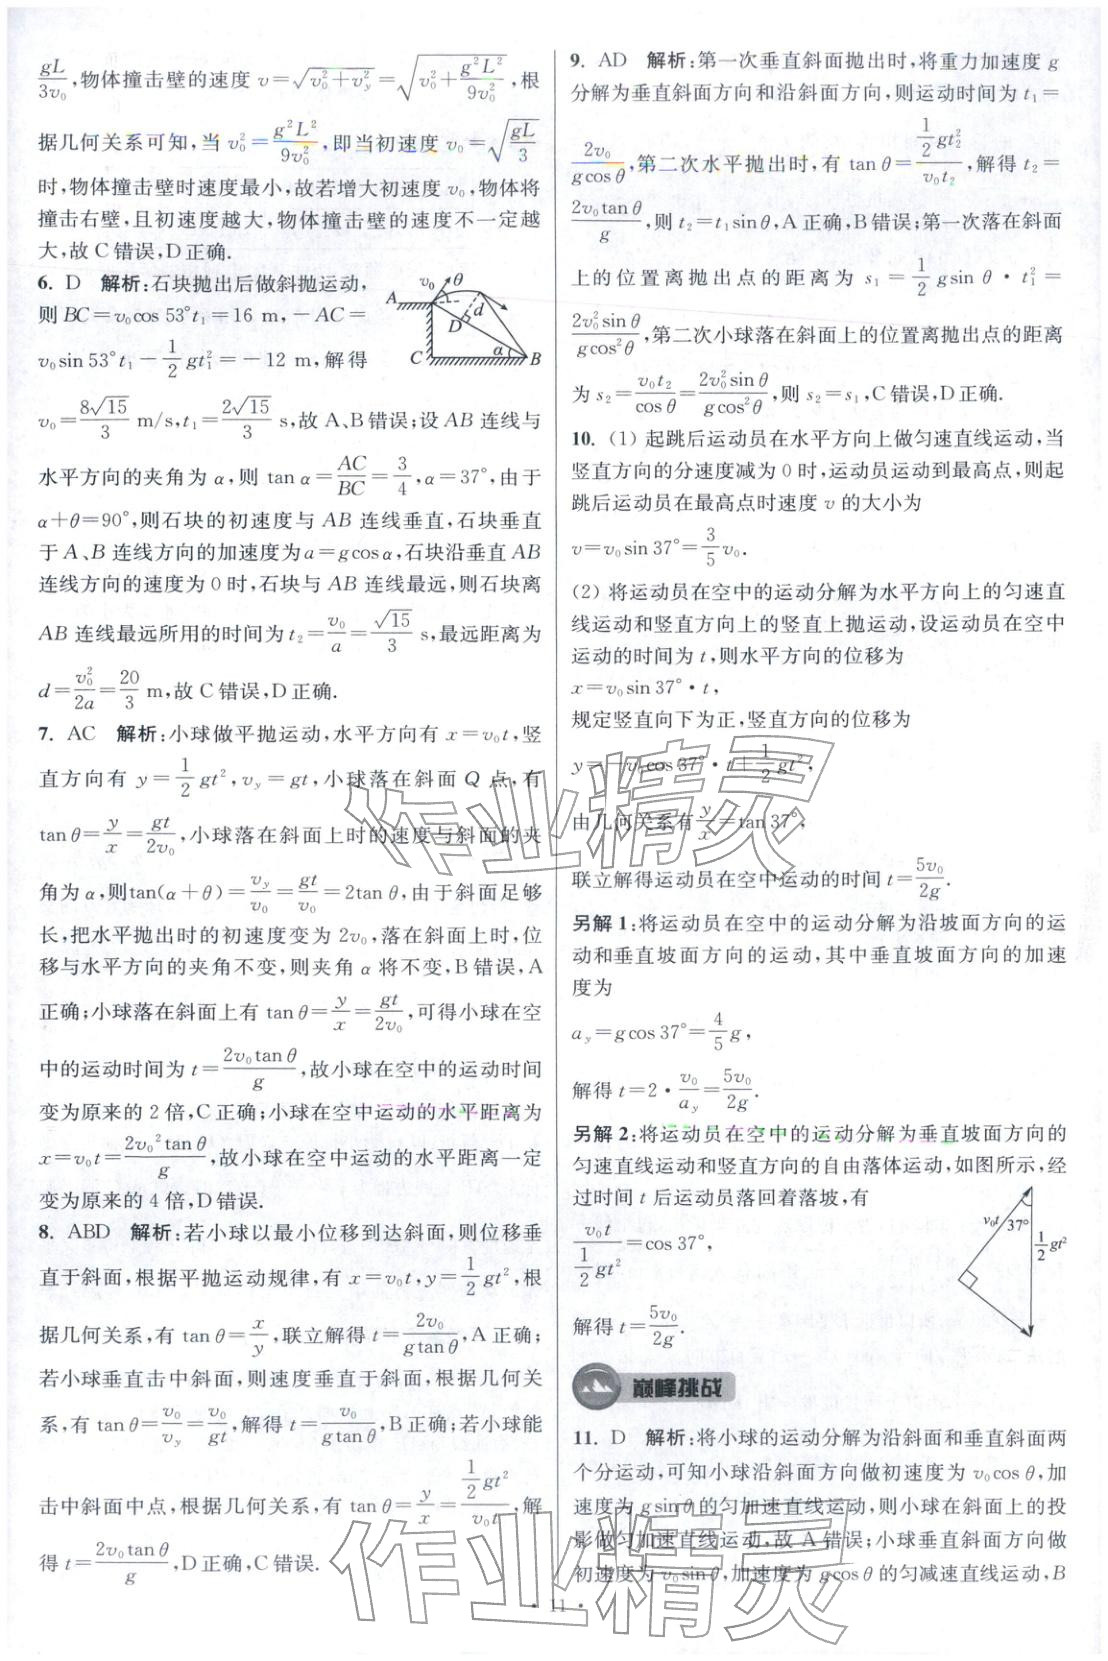 gL/3v₀,物体撞击壁的速度 v=√(v₀²+v_y²)=√(v₀²+g²L²/9v₀²),根
据几何关系可知,当 v₀²=g²L²/9v₀²,即当初速度 v₀=√(gL/3)
时,物体撞击壁时速度最小,故若增大初速度 v₀,物体将
撞击右壁,且初速度越大,物体撞击壁的速度不一定越
大,故 C 错误,D 正确.
6. D 解析:石块抛出后做斜抛运动,
则 BC=v₀cos 53°t₁=16 m,-AC=
v₀sin 53°t₁-1/2 gt₁²=-12 m,解得
v₀=8√15/3 m/s,t₁=2√15/3 s,故 A、B 错误;设 AB 连线与
水平方向的夹角为 α,则 tan α=AC/BC=3/4,α=37°,由于
α+θ=90°,则石块的初速度与 AB 连线垂直,石块垂直
于 A、B 连线方向的加速度为 a=gcos α,石块沿垂直 AB
连线方向的速度为 0 时,石块与 AB 连线最远,则石块离
AB 连线最远所用的时间为 t₂=v₀/a=√15/3 s,最远距离为
d=v₀²/2a=20/3 m,故 C 错误,D 正确.
v₀ θ
A
d
D
C α B
7. AC 解析:小球做平抛运动,水平方向有 x=v₀t,竖
直方向有 y=1/2 gt²,v_y=gt,小球落在斜面 Q 点,有
tan θ=y/x=gt/2v₀,小球落在斜面上时的速度与斜面的夹
角为 α,则tan(α+θ)=v_y/v₀=gt/v₀=2tan θ,由于斜面足够
长,把水平抛出时的初速度变为 2v₀,落在斜面上时,位
移与水平方向的夹角不变,则夹角 α 将不变,B 错误,A
正确;小球落在斜面上有 tan θ=y/x=gt/2v₀,可得小球在空
中的运动时间为 t=2v₀tan θ/g,故小球在空中的运动时间
变为原来的 2 倍,C 正确;小球在空中运动的水平距离为
x=v₀t=2v₀²tan θ/g,故小球在空中运动的水平距离一定
变为原来的 4 倍,D 错误.
8. ABD 解析:若小球以最小位移到达斜面,则位移垂
直于斜面,根据平抛运动规律,有 x=v₀t,y=1/2 gt²,根
据几何关系,有 tan θ=x/y,联立解得 t=2v₀/gtan θ,A 正确;
若小球垂直击中斜面,则速度垂直于斜面,根据几何关
系,有 tan θ=v₀/v_y=v₀/gt,解得 t=v₀/gtan θ,B 正确;若小球能
击中斜面中点,根据几何关系,有 tan θ=y/x=(1/2 gt²)/v₀t,解
得 t=2v₀tan θ/g,D 正确,C 错误.
9. AD 解析:第一次垂直斜面抛出时,将重力加速度 g
分解为垂直斜面方向和沿斜面方向,则运动时间为 t₁=
2v₀/gcos θ,第二次水平抛出时,有 tan θ=(1/2 gt₂²)/v₀t₂,解得 t₂=
2v₀tan θ/g,则 t₂=t₁sin θ,A 正确,B 错误;第一次落在斜面
上的位置离抛出点的距离为 s₁=1/2 gsin θ·t₁²=
2v₀²sin θ/gcos²θ,第二次小球落在斜面上的位置离抛出点的距离
为 s₂=v₀t₂/cos θ=2v₀²sin θ/gcos²θ,则 s₂=s₁,C 错误,D 正确.
10. (1) 起跳后运动员在水平方向上做匀速直线运动,当
竖直方向的分速度减为 0 时,运动员运动到最高点,则起
跳后运动员在最高点时速度 v 的大小为
v=v₀sin 37°=3/5 v₀.
(2) 将运动员在空中的运动分解为水平方向上的匀速直
线运动和竖直方向上的竖直上抛运动,设运动员在空中
运动的时间为 t,则水平方向的位移为
x=v₀sin 37°·t,
规定竖直向下为正,竖直方向的位移为
y=-v₀cos 37°·t+1/2 gt²,
由几何关系有 y/x=tan 37°,
联立解得运动员在空中运动的时间 t=5v₀/2g.
另解 1:将运动员在空中的运动分解为沿坡面方向的运
动和垂直坡面方向的运动,其中垂直坡面方向的加速
度为
a_y=gcos 37°=4/5 g,
解得 t=2·v₀/a_y=5v₀/2g.
另解 2:将运动员在空中的运动分解为垂直坡面方向的
匀速直线运动和竖直方向的自由落体运动,如图所示,经
过时间 t 后运动员落回着落坡,有
v₀t/(1/2 gt²)=cos 37°,
解得 t=5v₀/2g.
v₀t 37° 1/2 gt²
巅峰挑战
11. D 解析:将小球的运动分解为沿斜面和垂直斜面两
个分运动,可知小球沿斜面方向做初速度为 v₀cos θ,加
速度为 gsin θ 的匀加速直线运动,则小球在斜面上的投
影做匀加速直线运动,故 A 错误;小球垂直斜面方向做
初速度为 v₀sin θ,加速度为 gcos θ 的匀减速直线运动,B
· 11 ·
作业精灵
作业精灵